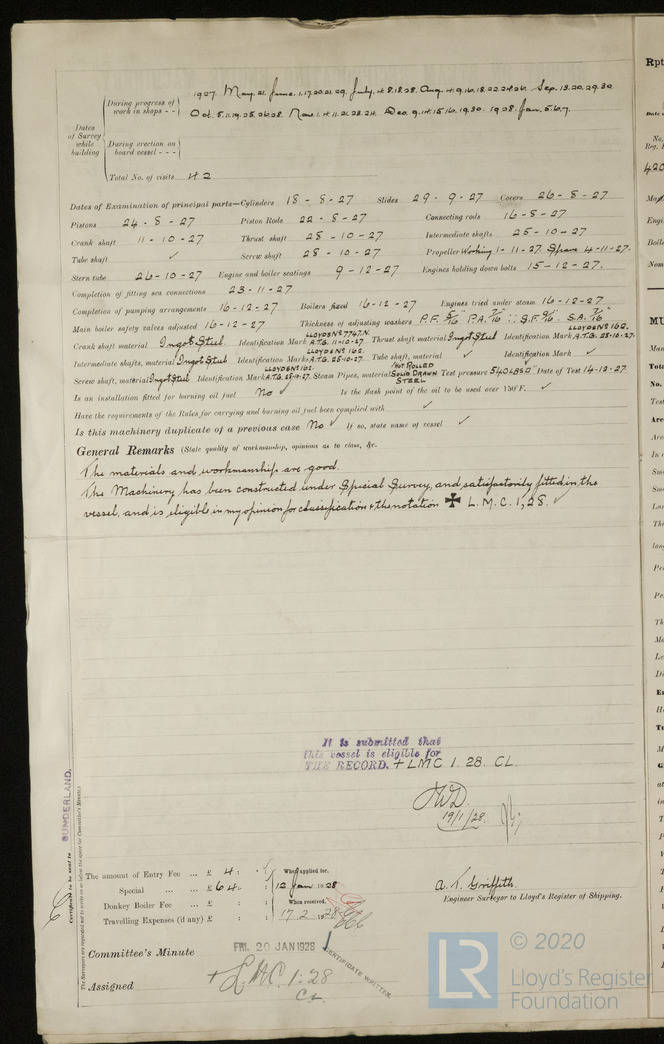 1927. May. 21. June. 1.17.20.21.29. July. 4.8.18.28. Aug. 4.9.16.18.22.24.26. Sep. 13.20.29.30
During progress of work in shops - -
Oct. 5.11.19.25.26.28. Nov. 1.4.11.21.23.24. Dec. 9.14.15.16.19.30. 1928. Jan. 5.6.7.
Dates of Survey while building
During erection on board vessel - - -
Total No. of visits 42
Dates of Examination of principal parts—Cylinders 18 - 8 - 27 Slides 29 - 9 - 27 Covers 26 - 8 - 27
Pistons 24 - 8 - 27 Piston Rods 22 - 8 - 27 Connecting rods 16 - 8 - 27
Crank shaft 11 - 10 - 27 Thrust shaft 28 - 10 - 27 Intermediate shafts 25 - 10 - 27
Tube shaft ✓ Screw shaft 28 - 10 - 27 Propeller Working 1 - 11 - 27. Spare 4 - 11 - 27.
Stern tube 26 - 10 - 27 Engine and boiler seatings 9 - 12 - 27 Engines holding down bolts 15 - 12 - 27.
Completion of fitting sea connections 23 - 11 - 27
Completion of pumping arrangements 16 - 12 - 27 Boilers fixed 16 - 12 - 27 Engines tried under steam 16 - 12 - 27
Main boiler safety valves adjusted 16 - 12 - 27 Thickness of adjusting washers P.F. 5/16" P.A. 7/16" :: S.F. 9/16" S.A. 7/16"
Crank shaft material Ingot Steel. Identification Mark LLOYDS No 7747.N. A.T.G. 11-10-27 Thrust shaft material Ingot Steel Identification Mark LLOYDS No 162. A.T.G. 28-10-27.
Intermediate shafts, material Ingot Steel Identification Marks LLOYDS No 162. A.T.G. 25-10-27. Tube shaft, material ✓ Identification Mark ✓
Screw shaft, material Ingot Steel Identification Mark LLOYDS No 162. A.T.G. 28-10-27. Steam Pipes, material HOT ROLLED SOLID DRAWN STEEL Test pressure 540 LBS □" Date of Test 14-12-27.
Is an installation fitted for burning oil fuel No ✓ Is the flash point of the oil to be used over 150°F. ✓
Have the requirements of the Rules for carrying and burning oil fuel been complied with ✓
Is this machinery duplicate of a previous case No ✓ If so, state name of vessel ✓
General Remarks (State quality of workmanship, opinions as to class, &c.
The materials and workmanship are good.
The Machinery has been constructed under Special Survey, and satisfactorily fitted in the
vessel, and is eligible in my opinion for classification & the notation ✠ L.M.C. 1,28. ✓
It is submitted that
this vessel is eligible for
THE RECORD. + LMC 1. 28. CL.
19/1/28.
SUNDERLAND.
Certificate to be sent to
The Surveyors are requested not to write on or below the space for Committee's Minute.
The amount of Entry Fee ... £ 4 : : When applied for,
Special ... ... £ 64 : : 12 Jan 1928
Donkey Boiler Fee ... £ : : When received,
Travelling Expenses (if any) £ : : 17. 2. 1928
A. T. Griffith.
Engineer Surveyor to Lloyd's Register of Shipping.
Committee's Minute FRI. 20 JAN 1928
CERTIFICATE WRITTEN.
Assigned + LMC 1. 28
CL
© 2020
LR Lloyd's Register
Foundation
Rpt